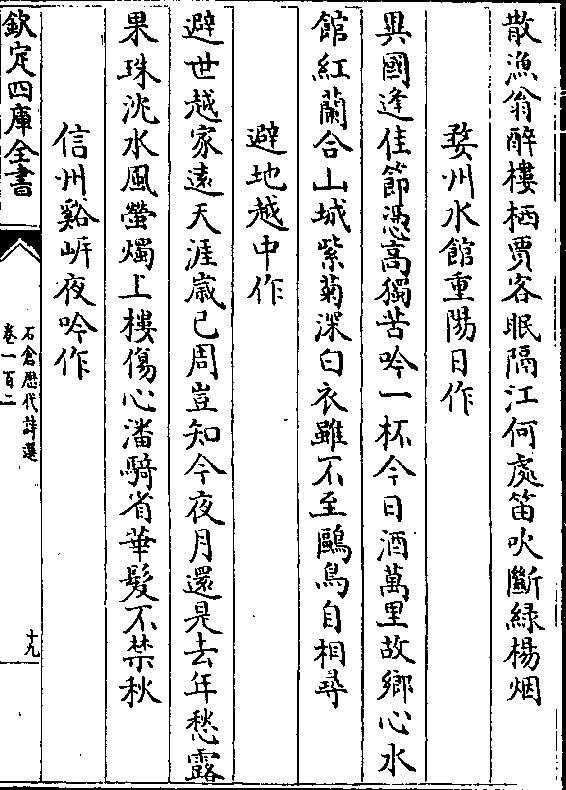 散漁翁醉樓栖賈客眠隔江何處笛吹斷緑楊烟
婺州水館重陽日作
異國逢佳節憑高獨苦吟一杯今日酒萬里故鄉心水
館紅蘭合山城紫菊深白衣雖不至鷗鳥自相尋
避地越中作
避世越家遠天涯歳已周豈知今夜月還是去年愁露
果珠沈水風螢燭上樓傷心潘騎省華髮不禁秋
信州谿岸夜吟作
欽定四庫全書
石倉歴代詩選
卷一百二
十九